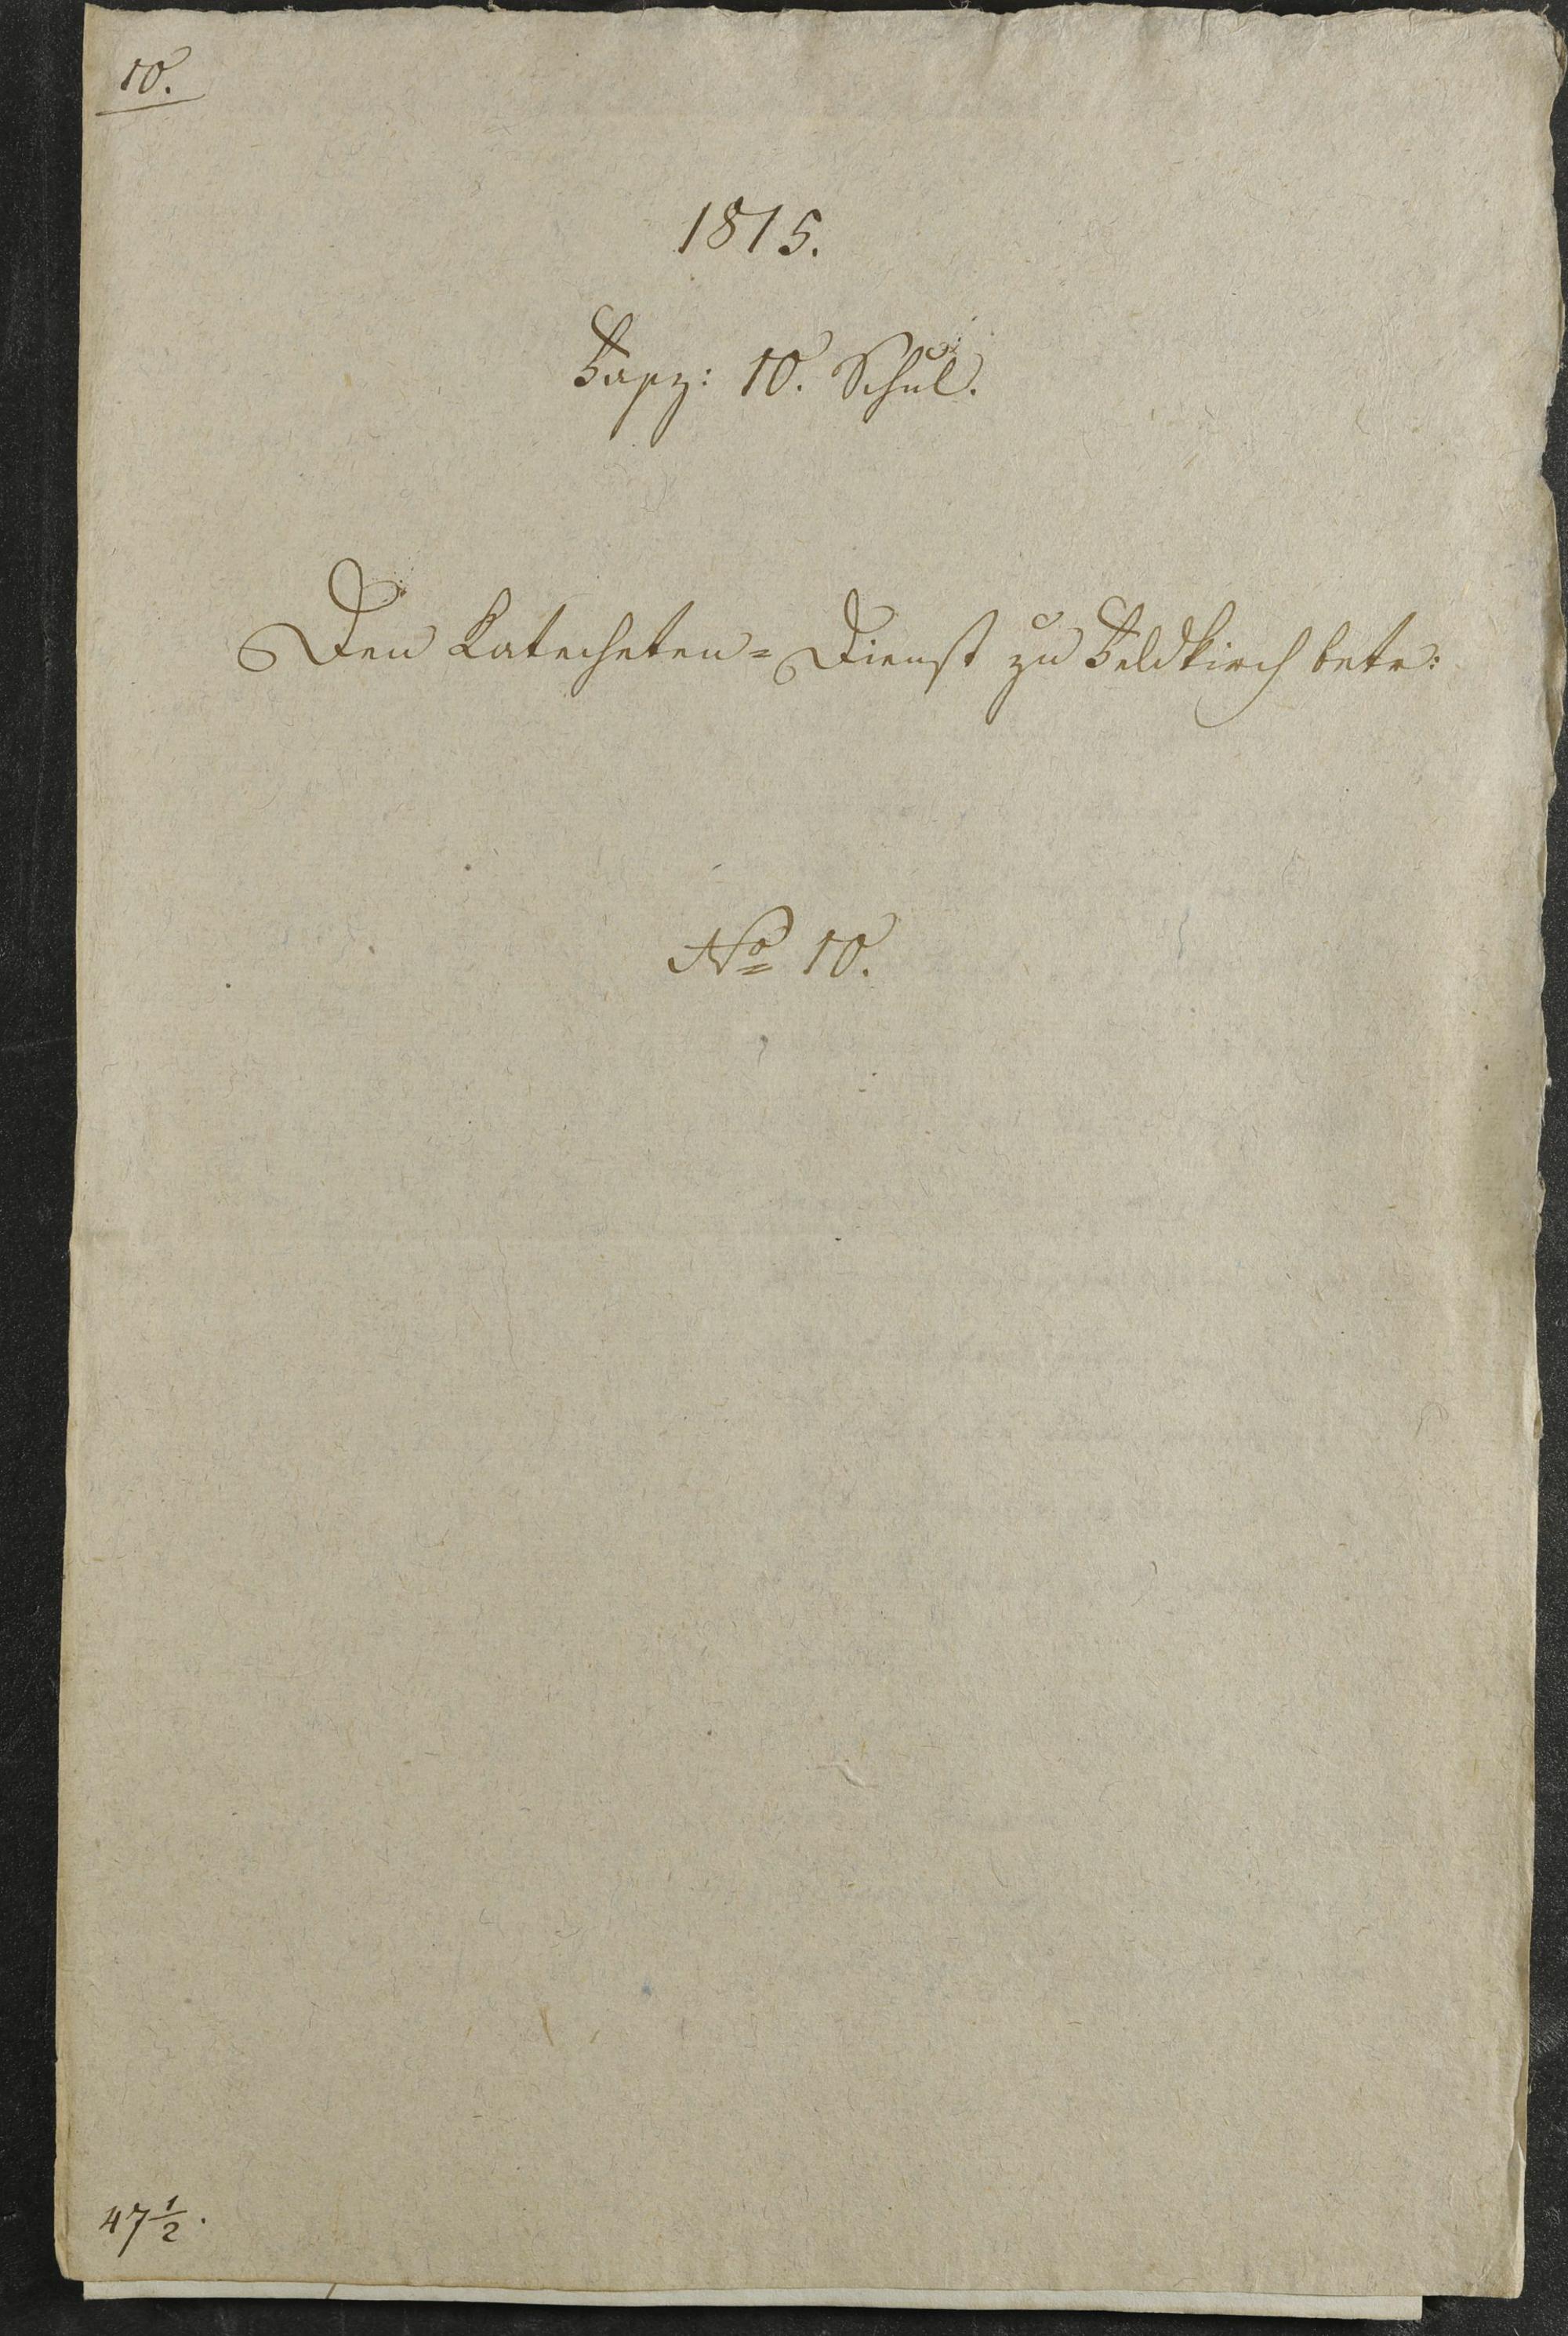 10.
1815.
Fasz: 10. Schul.
Den Katecheten-Dienst zu Feldkirch betr:
No 10.
47 1/2.